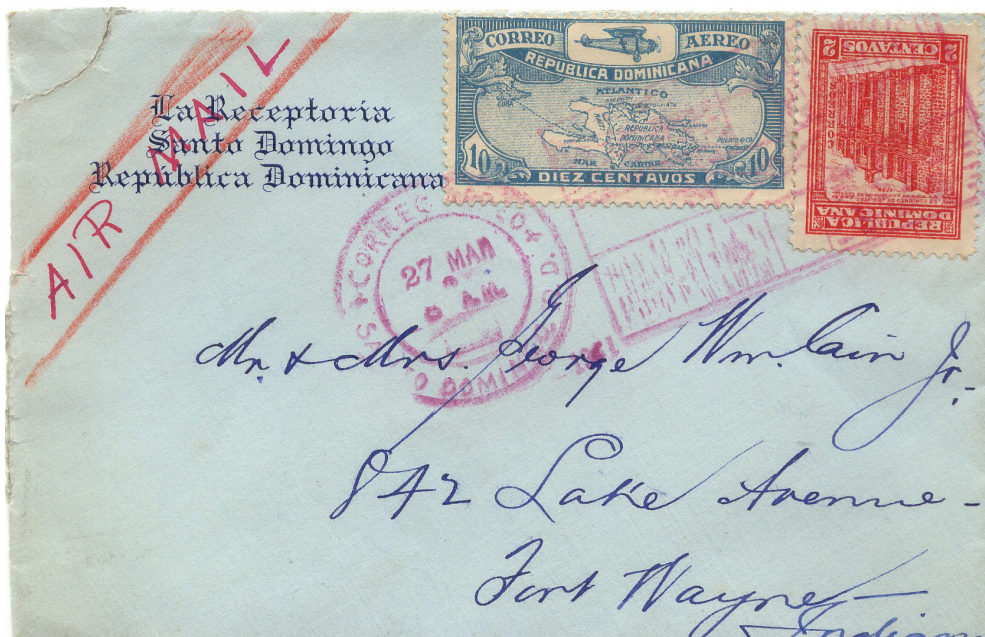 AIR MAIL
La Receptoria
Santo Domingo
República Dominicana
CORREO AEREO
REPUBLICA DOMINICANA
ATLANTICO
CUBA
REPUBLICA
DOMINICANA
PUERTO RICO
MAR CARIBE
10 10
DIEZ CENTAVOS
2 CENTAVOS 2
CORREOS
REPUBLICA
DOMINICANA
CORREO
27 MAR
A.M.
SANTO DOMINGO
Mr. & Mrs. George Wm. Cain Jr.
842 Lake Avenue -
Fort Wayne -
Indian